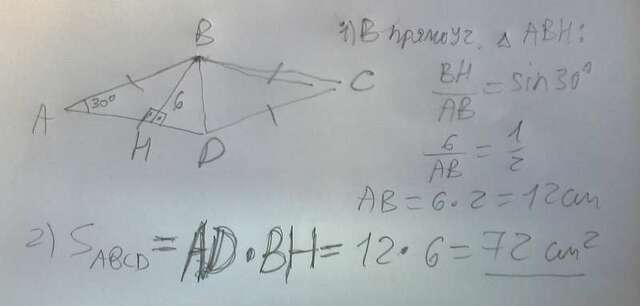 B
A
30°
6
C
H
D
1) В прямоуг. △ ABH:
BH/AB = sin30°
6/AB = 1/2
AB = 6·2 = 12см
2) S ABCD = AD·BH = 12·6 = 72 см²